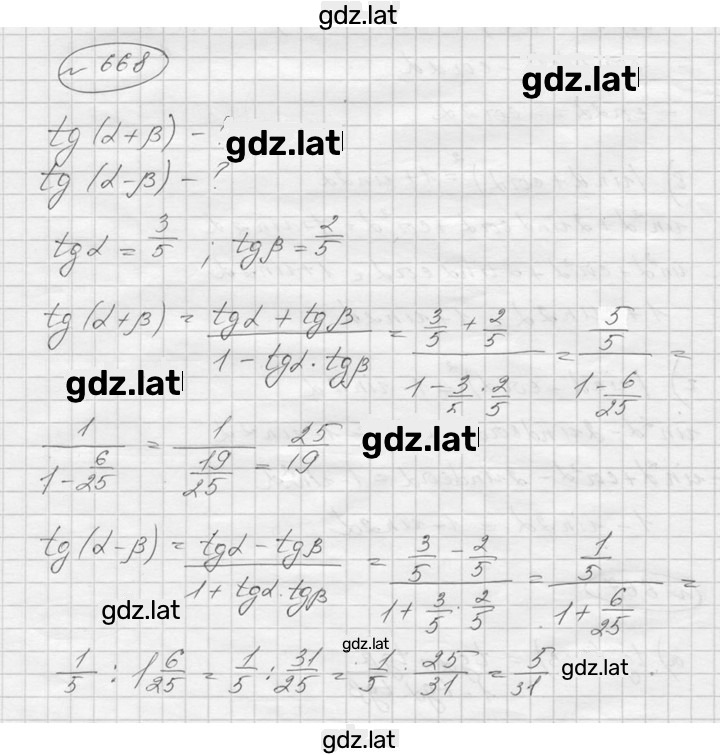 gdz.lat
№ 668
gdz.lat
tg(α+β) - ?
gdz.lat
tg(α-β) - ?
tgα = 3/5 ; tgβ = 2/5
tg(α+β) = (tgα + tgβ)/(1 - tgα · tgβ) = (3/5 + 2/5)/(1 - 3/5 · 2/5) = (5/5)/(1 - 6/25) =
gdz.lat
1/(1 - 6/25) = 1/(19/25) = 25/19
gdz.lat
tg(α-β) = (tgα - tgβ)/(1 + tgα · tgβ) = (3/5 - 2/5)/(1 + 3/5 · 2/5) = (1/5)/(1 + 6/25) =
gdz.lat
gdz.lat
1/5 : 1 6/25 = 1/5 : 31/25 = 1/5 · 25/31 = 5/31
gdz.lat
gdz.lat